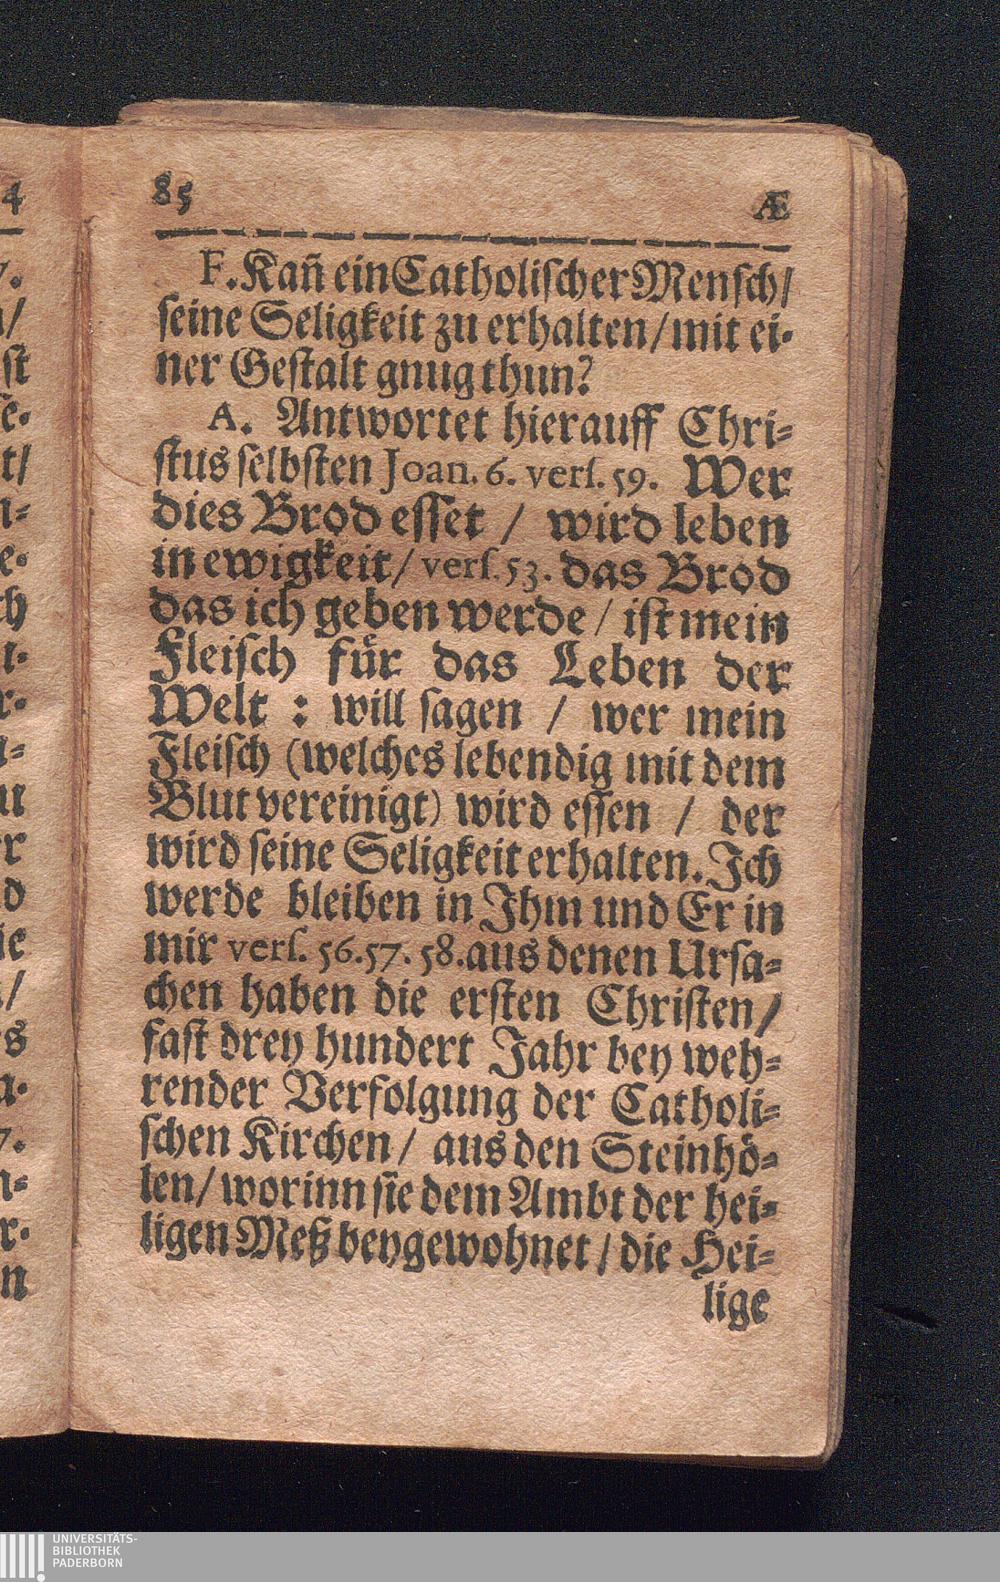 85 Æ
F. Kan̄ ein Catholischer Mensch/
seine Seligkeit zu erhalten/ mit ei-
ner Gestalt gnug thun?
A. Antwortet hierauff Chri-
stus selbsten Joan. 6. vers. 59. Wer
dies Brod esset / wird leben
in ewigkeit/ vers. 53. das Brod
das ich geben werde / ist mein
Fleisch für das Leben der
Welt : will sagen / wer mein
Fleisch (welches lebendig mit dem
Blut vereinigt) wird essen / der
wird seine Seligkeit erhalten. Ich
werde bleiben in Ihm und Er in
mir vers. 56. 57. 58. aus denen Ursa-
chen haben die ersten Christen/
fast drey hundert Jahr bey weh-
render Verfolgung der Catholi-
schen Kirchen/ aus den Steinhö-
len/ worinn sie dem Ambt der hei-
ligen Meß beygewohnet / die Hei-
lige
UNIVERSITÄTS-
BIBLIOTHEK
PADERBORN